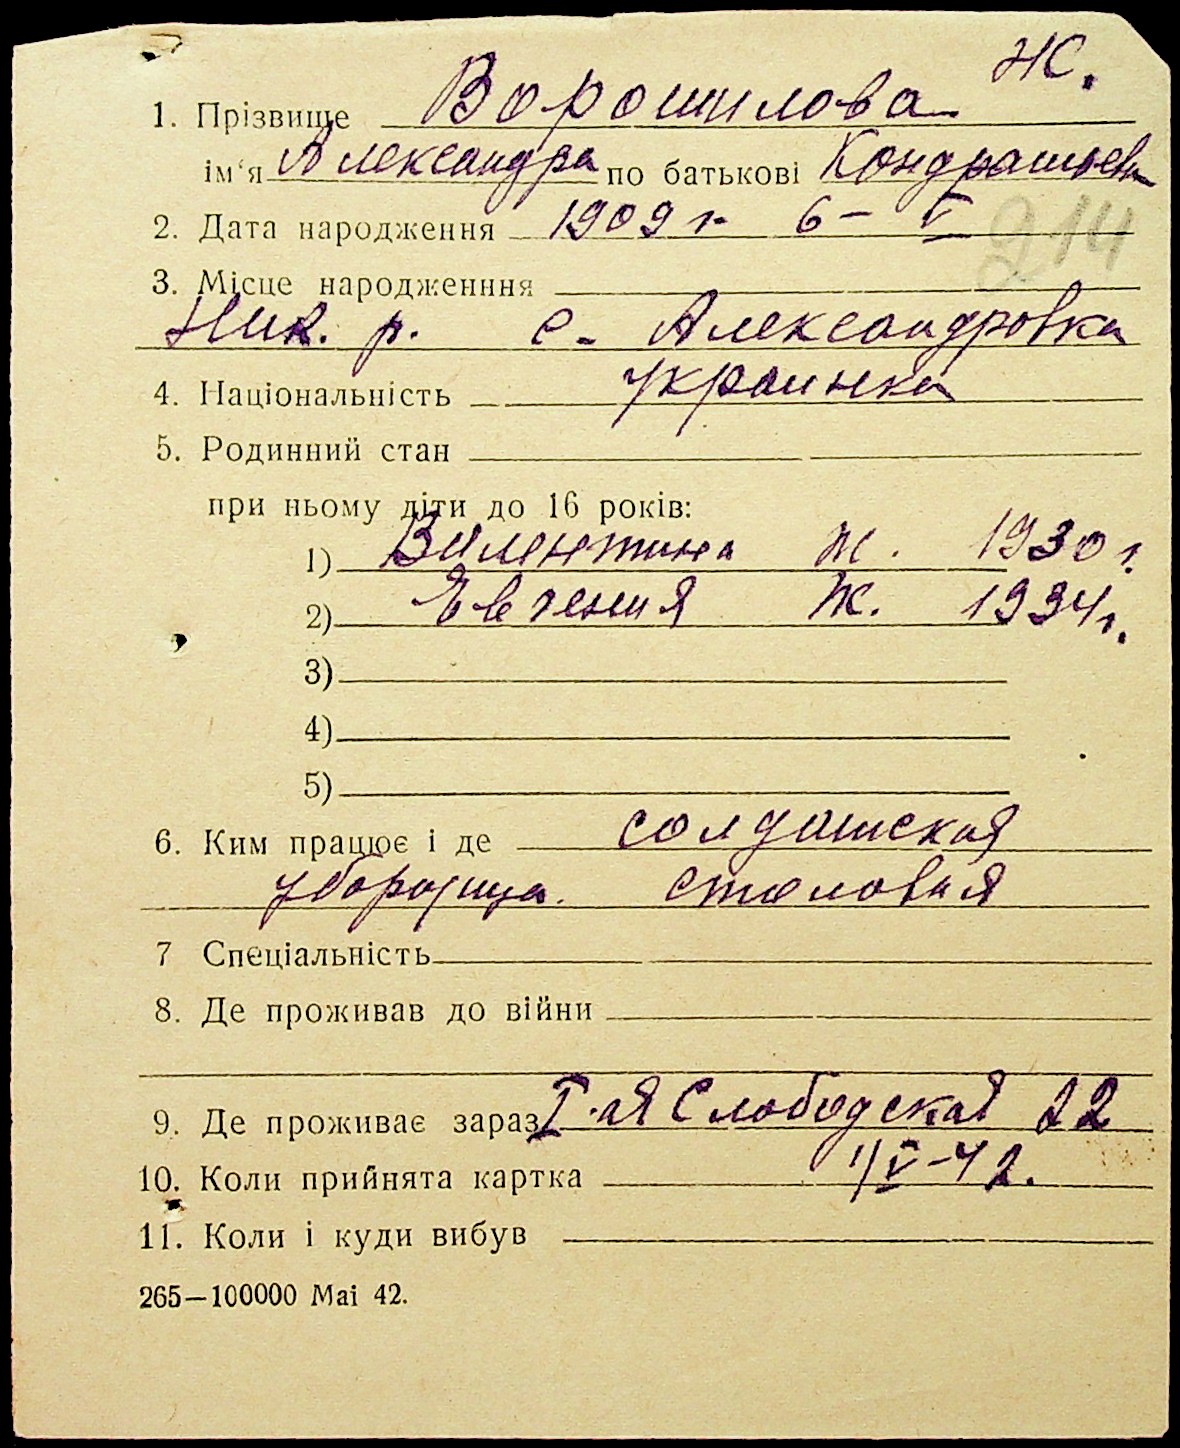 Ж.
1. Прізвище Ворошилова
ім'я Александра по батькові Кондратьевн
2. Дата народження 1909 г. 6 – V
214
3. Місце народженння
Ник. р. с. Александровка
4. Національність украинка
5. Родинний стан
при ньому діти до 16 років:
1) Валентина Ж. 1930 г.
2) Евгения Ж. 1934 г.
3)
4)
5)
6. Ким працює і де солдатская
уборщица. столовая
7 Спеціальність
8. Де проживав до війни
9. Де проживає зараз I-ая Слободская 22
10. Коли прийнята картка 1/V-42.
11. Коли і куди вибув
265—100000 Mai 42.